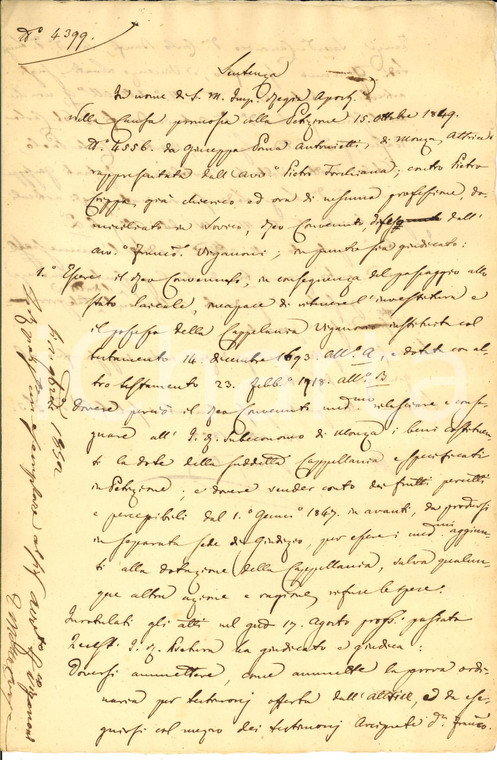 N.° 4399.
Sentenza
In nome di S. M. Imp. Regia Apost.
Nella Causa promossa colla Petizione 15. Ottobre 1849.
N.° 4556. da Giuseppa Antonietti, di Monza, Attrice
rappresentata dall'Avv.° Pietro; contro Pietro
Crippa, già chierico ed ora di nessuna professione, do-
miciliato in Sovico, Reo Convenuto, difeso dall'
avv.° Franc.° Viganoni; in punto sia giudicato:
1.° Essere il Reo Convenuto, in conseguenza del passaggio allo
stato laicale, incapace di ritenere l'investitura e
il possesso della Cappellania instituita col
testamento 14. dicembre 1693. All.° A, e dotata con al-
tro testamento 23. Febb.° 1718. All.° B
Dovere perciò il Reo Convenuto med.mo rilasciare e conse-
gnare all'I. R. Subeconomo di Monza i beni costituen-
ti la dote della suddetta Cappellania e specificati
in Petizione; e dovere render conto dei frutti percetti
e percepibili dal 1.° Genn.° 1847. in avanti, da prodursi
in separata sede di Giudizio, per essere i med.mi aggiun-
ti alla dotazione della Cappellania, salva qualun-
que altra azione e ragione, rifuse le spese.
Inrotulati gli atti nel gno 17. Agosto pross.° passato
I. R. Pretura ha giudicato e giudica:
Doversi ammettere, come ammette la prova ordi-
naria per testimonj offerta dall'Attrice, e da ese-
guirsi col mezzo dei testimonj Arciprete Dn. Franc.°
6 aprile 1850